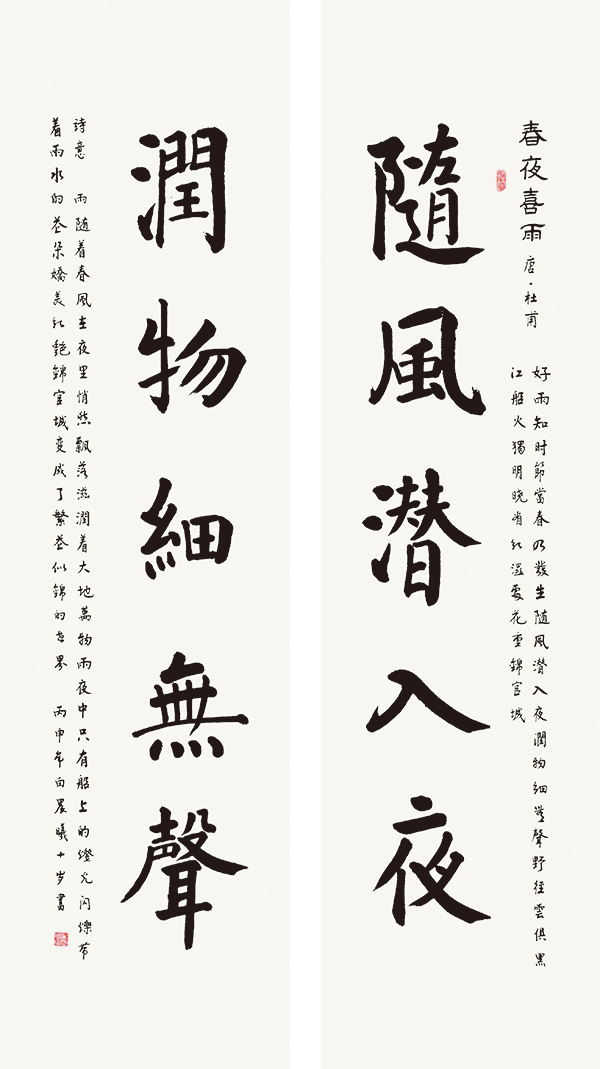 春夜喜雨 唐·杜甫
好雨知时節當春乃發生随風潜入夜潤物细無聲野径雲俱黑
江船火獨明晓看红湿處花重錦官城
隨風潜入夜
潤物細無聲
诗意 雨随着春風在夜里悄然飘落滋潤着大地萬物雨夜中只有船上的燈光闪爍带
着雨水的花朵嬌美红艷錦官城变成了繁花似錦的世界 丙申年向晨曦十岁書